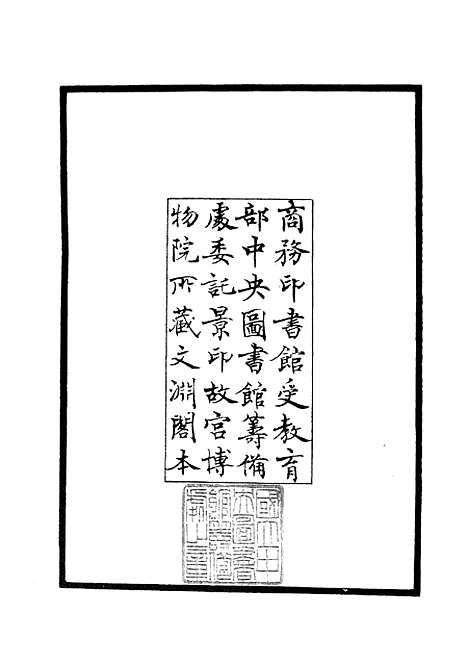 商務印書館受教育
部中央圖書館籌備
處委託景印故宮博
物院所藏文淵閣本